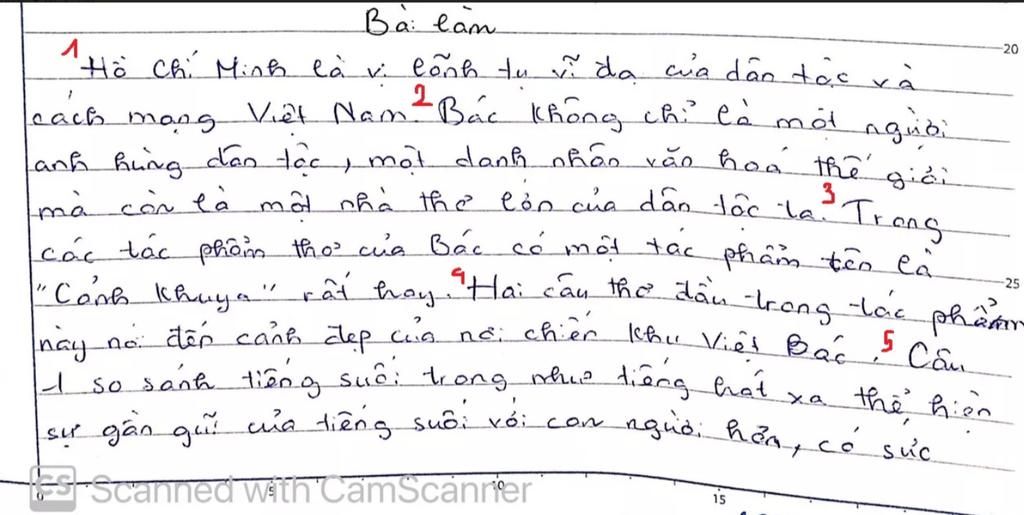 Bài làm
20
1 Hồ Chí Minh là vị lãnh tụ vĩ đạ của dân tộc và
cách mạng Việt Nam. 2 Bác không chỉ là một người
anh hùng dân tộc, một danh nhân văn hoá thế giới
mà còn là một nhà thơ lớn của dân tộc ta. 3 Trong
các tác phẩm thơ của Bác có một tác phẩm tên là
"Cảnh Khuya" rất hay. 4 Hai câu thơ đầu trong tác phẩm
25
này nói đến cảnh đẹp của nơi chiến khu Việt Bắc. 5 Câu
1 so sánh tiếng suối trong như tiếng hát xa thể hiện
sự gần gũi của tiếng suối với con người hơn, có sức
CS Scanned with CamScanner
0 5 10 15